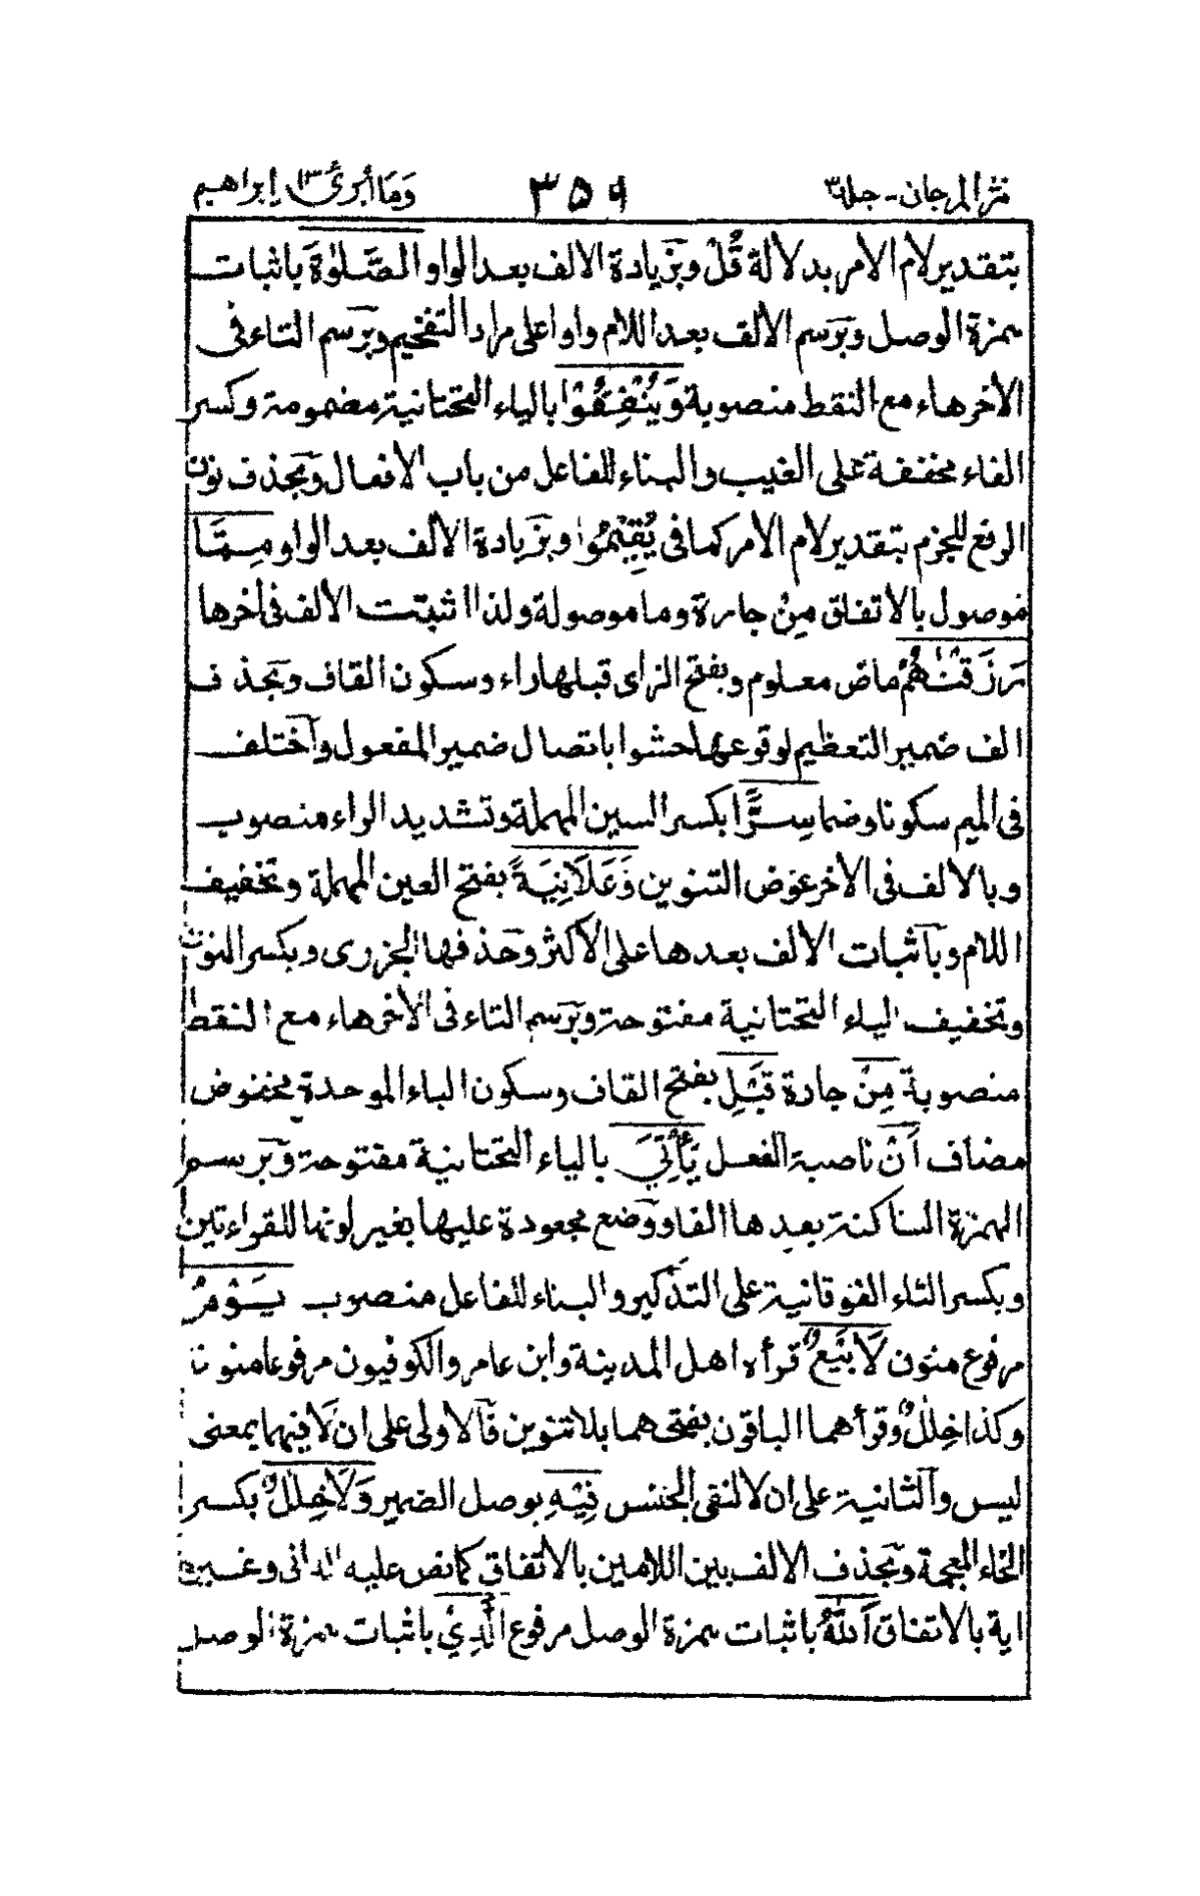 نثر المرجان - جلد٣ ٣٥٩ وَمَا أُبَرِّئُ ١٣ إبراهيم
بتقدير لام الامر بدلالة قُلْ وبزيادة الالف بعد الواو الصَّلٰوةَ باثبات
همزة الوصل وبرسم الالف بعد اللام واوا على مراد التفخيم وبرسم التاء فى
الأخر هاء مع النقط منصوبة وَيُنْفِقُوْا بالياء التحتانية مضمومة وكسر
الفاء مخففة على الغيب والبناء للفاعل من باب الافعال وبحذف نون
الرفع للجزم بتقدير لام الامر كما فى يُقِيْمُوا وبزيادة الالف بعد الواو مِمَّا
موصول بالاتفاق مِنْ جارة وما موصولة ولذا اثبتت الالف فى أخرها
رَزَقْنٰهُمْ ماض معلوم وبفتح الزاى قبلها راء وسكون القاف وبحذف
الف ضمير التعظيم لوقوعها حشوا باتصال ضمير المفعول واختلف
فى الميم سكونا وضما سِرًّا بكسر السين المهملة وتشديد الراء منصوب
وبالالف فى الأخر عوض التنوين وَعَلَانِيَةً بفتح العين المهملة وتخفيف
اللام وباثبات الالف بعدها على الاكثر وحذفها الجزرى وبكسر النون
وتخفيف الياء التحتانية مفتوحة وبرسم التاء فى الأخر هاء مع النقط
منصوبة مِنْ جارة قَبْلِ بفتح القاف وسكون الباء الموحدة مخفوض
مضاف اَنْ ناصبة الفعل يَأْتِيَ بالياء التحتانية مفتوحة وبرسم
الهمزة الساكنة بعدها الفا ووضع مجعودة عليها بغير لونها للقراءتين
وبكسر التاء الفوقانية على التذكير والبناء للفاعل منصوب يَوْمٌ
مرفوع منون لَا بَيْعٌ قرأه اهل المدينة وابن عامر والكوفيون مرفوعا منونة
وكذا خِلٰلٌ وقرأهما الباقون بفتحهما بلا تنوين فالاولى على ان لَا فيهما بمعنى
ليس والثانية على ان لا لنفى الجنس فِيْهِ بوصل الضمير وَلَا خِلٰلٌ بكسر
الخاء المعجمة وبحذف الالف بين اللامين بالاتفاق كما نص عليه الدانى وغيره
اية بالاتفاق اَللّٰهُ باثبات همزة الوصل مرفوع الَّذِيْ باثبات همزة الوصل